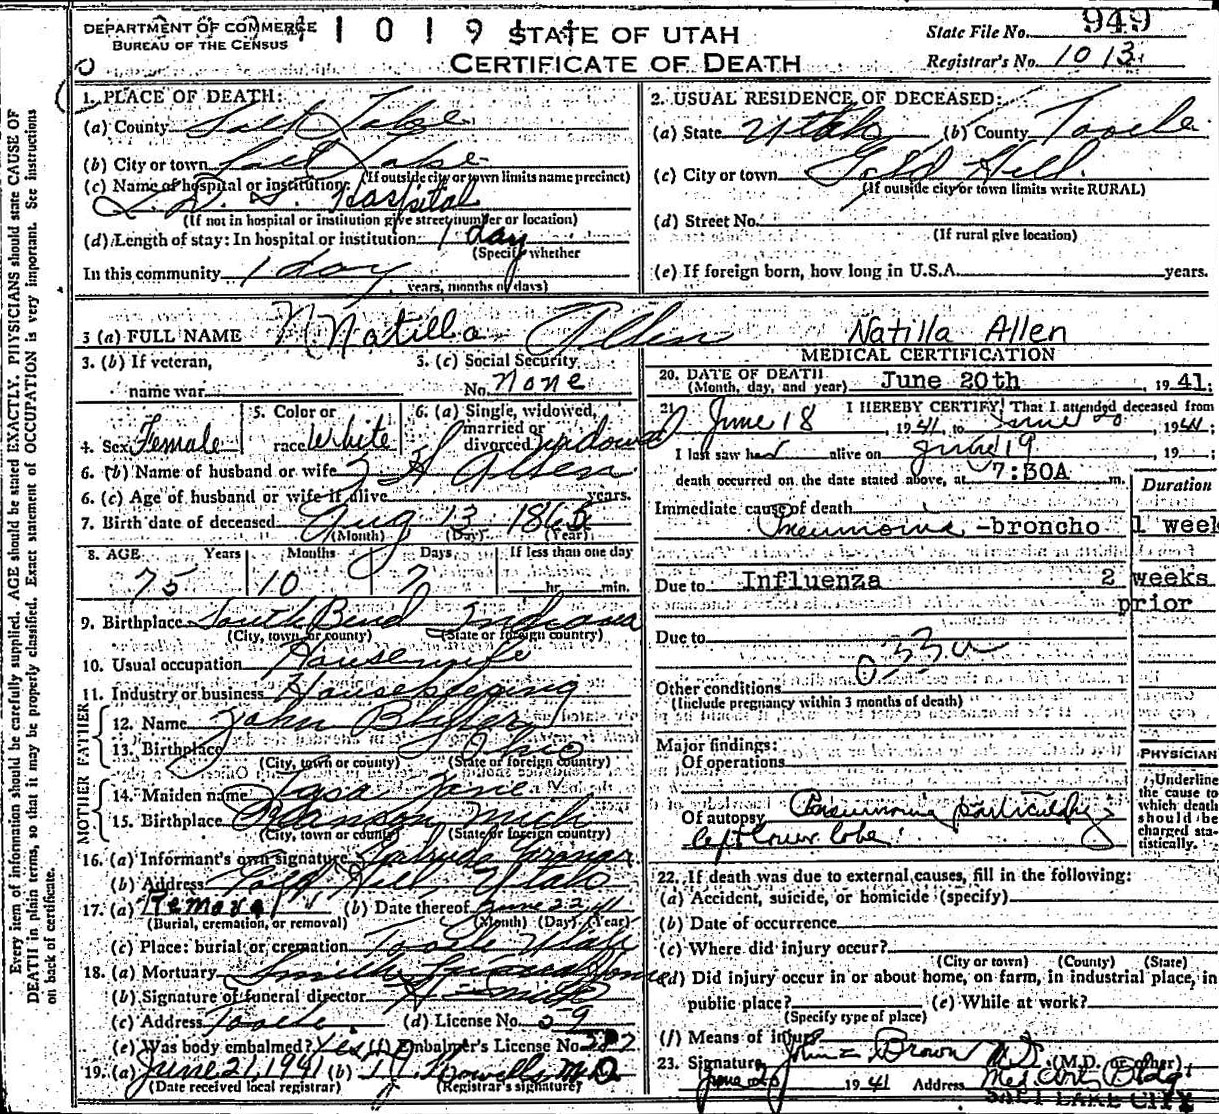 DEPARTMENT OF COMMERCE
BUREAU OF THE CENSUS
1 0 1 9
STATE OF UTAH
CERTIFICATE OF DEATH
State File No. 949
Registrar's No. 1013
Every item of information should be carefully supplied. AGE should be stated EXACTLY. PHYSICIANS should state CAUSE OF
DEATH in plain terms, so that it may be properly classified. Exact statement of OCCUPATION is very important. See instructions
on back of certificate.
1. PLACE OF DEATH:
(a) County Salt Lake
(b) City or town Salt Lake
(If outside city or town limits name precinct)
(c) Name of hospital or institution:
L. D. S. Hospital
(If not in hospital or institution give street number or location)
(d) Length of stay: In hospital or institution 1 day
(Specify whether
In this community 1 day
years, months or days)
2. USUAL RESIDENCE OF DECEASED:
(a) State Utah (b) County Tooele
(c) City or town Gold Hill
(If outside city or town limits write RURAL)
(d) Street No.
(If rural give location)
(e) If foreign born, how long in U.S.A. years.
3 (a) FULL NAME Natilla Allen Natilla Allen
3. (b) If veteran,
name war
3. (c) Social Security
No. none
4. Sex Female
5. Color or
race White
6. (a) Single, widowed,
married or
divorced widowed
6. (b) Name of husband or wife H Allen
6. (c) Age of husband or wife if alive years.
7. Birth date of deceased Aug 13 1865
(Month) (Day) (Year)
8. AGE Years Months Days If less than one day
75 10 7 hr. min.
9. Birthplace South Bend Indiana
(City, town, or county) (State or foreign country)
10. Usual occupation Housewife
11. Industry or business Housekeeping
FATHER
12. Name John
13. Birthplace Ohio
(City, town or county) (State or foreign country)
MOTHER
14. Maiden name Jane
15. Birthplace Mich
(City, town or county) (State or foreign country)
16. (a) Informant's own signature
(b) Address Gold Hill Utah
17. (a) Removal (b) Date thereof June 22 41
(Burial, cremation, or removal) (Month) (Day) (Year)
(c) Place: burial or cremation Tooele Utah
18. (a) Mortuary Smith Funeral Home
(b) Signature of funeral director Smith
(c) Address Tooele (d) License No. 59
(e) Was body embalmed? Yes (f) Embalmer's License No.
19. (a) June 21, 1941 (b) M.D.
(Date received local registrar) (Registrar's signature)
MEDICAL CERTIFICATION
20. DATE OF DEATH
(Month, day, and year) June 20th, 1941;
21. I HEREBY CERTIFY, That I attended deceased from
June 18, 1941, to June 20, 1941;
I last saw her alive on June 19, 19 ;
death occurred on the date stated above, at 7:30A m.
Duration
Immediate cause of death
Pneumonia -broncho 1 week
Due to Influenza 2 weeks
prior
Due to
33a
Other conditions
(Include pregnancy within 3 months of death)
Major findings:
Of operations
Of autopsy Pneumonia particularly
left lower lobe
PHYSICIAN
Underline
the cause to
which death
should be
charged sta-
tistically.
22. If death was due to external causes, fill in the following:
(a) Accident, suicide, or homicide (specify)
(b) Date of occurrence
(c) Where did injury occur?
(City or town) (County) (State)
(d) Did injury occur in or about home, on farm, in industrial place, in
public place? (e) While at work?
(Specify type of place)
(f) Means of injury
23. Signature John Z Brown M.D. (M.D. or other)
June 20 1941 Address Med Arts Bldg.
SALT LAKE CITY